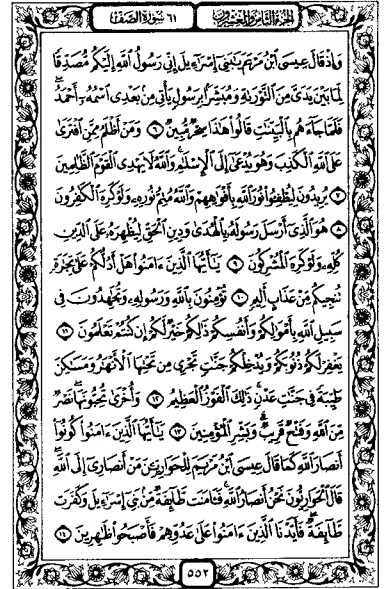 الجزء الثامن والعشرون ٦١ سورة الصف
وَإِذْ قَالَ عِيسَى ابْنُ مَرْيَمَ يَٰبَنِىٓ إِسْرَٰٓءِيلَ إِنِّى رَسُولُ اللَّهِ إِلَيْكُم مُّصَدِّقًا
لِّمَا بَيْنَ يَدَىَّ مِنَ التَّوْرَىٰةِ وَمُبَشِّرًۢا بِرَسُولٍ يَأْتِى مِنۢ بَعْدِى اسْمُهُۥٓ أَحْمَدُ
فَلَمَّا جَآءَهُم بِالْبَيِّنَٰتِ قَالُوا۟ هَٰذَا سِحْرٌ مُّبِينٌ ٦ وَمَنْ أَظْلَمُ مِمَّنِ افْتَرَىٰ
عَلَى اللَّهِ الْكَذِبَ وَهُوَ يُدْعَىٰٓ إِلَى الْإِسْلَٰمِ وَاللَّهُ لَا يَهْدِى الْقَوْمَ الظَّٰلِمِينَ
٧ يُرِيدُونَ لِيُطْفِـُٔوا۟ نُورَ اللَّهِ بِأَفْوَٰهِهِمْ وَاللَّهُ مُتِمُّ نُورِهِۦ وَلَوْ كَرِهَ الْكَٰفِرُونَ
٨ هُوَ الَّذِىٓ أَرْسَلَ رَسُولَهُۥ بِالْهُدَىٰ وَدِينِ الْحَقِّ لِيُظْهِرَهُۥ عَلَى الدِّينِ
كُلِّهِۦ وَلَوْ كَرِهَ الْمُشْرِكُونَ ٩ يَٰٓأَيُّهَا الَّذِينَ ءَامَنُوا۟ هَلْ أَدُلُّكُمْ عَلَىٰ تِجَٰرَةٍ
تُنجِيكُم مِّنْ عَذَابٍ أَلِيمٍ ١٠ تُؤْمِنُونَ بِاللَّهِ وَرَسُولِهِۦ وَتُجَٰهِدُونَ فِى
سَبِيلِ اللَّهِ بِأَمْوَٰلِكُمْ وَأَنفُسِكُمْ ذَٰلِكُمْ خَيْرٌ لَّكُمْ إِن كُنتُمْ تَعْلَمُونَ ١١
يَغْفِرْ لَكُمْ ذُنُوبَكُمْ وَيُدْخِلْكُمْ جَنَّٰتٍ تَجْرِى مِن تَحْتِهَا الْأَنْهَٰرُ وَمَسَٰكِنَ
طَيِّبَةً فِى جَنَّٰتِ عَدْنٍ ذَٰلِكَ الْفَوْزُ الْعَظِيمُ ١٢ وَأُخْرَىٰ تُحِبُّونَهَا نَصْرٌ
مِّنَ اللَّهِ وَفَتْحٌ قَرِيبٌ وَبَشِّرِ الْمُؤْمِنِينَ ١٣ يَٰٓأَيُّهَا الَّذِينَ ءَامَنُوا۟ كُونُوٓا۟
أَنصَارَ اللَّهِ كَمَا قَالَ عِيسَى ابْنُ مَرْيَمَ لِلْحَوَارِيِّـۧنَ مَنْ أَنصَارِىٓ إِلَى اللَّهِ
قَالَ الْحَوَارِيُّونَ نَحْنُ أَنصَارُ اللَّهِ فَـَٔامَنَت طَّآئِفَةٌ مِّنۢ بَنِىٓ إِسْرَٰٓءِيلَ وَكَفَرَت
طَّآئِفَةٌ فَأَيَّدْنَا الَّذِينَ ءَامَنُوا۟ عَلَىٰ عَدُوِّهِمْ فَأَصْبَحُوا۟ ظَٰهِرِينَ ١٤
٥٥٢